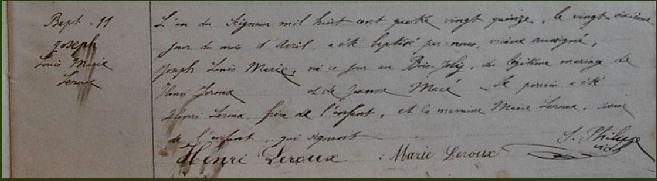 Bapt. 11
Joseph
Louis Marie
Leroux
L'an du Seigneur mil huit cent quatre vingt quinze, le vingt sixième
jour du mois d'Avril, a été baptisé par nous, vicaire soussigné,
Joseph Louis Marie, né ce jour au Bois Joly, du légitime mariage de
Henri Leroux et de Jeanne Macé. Le parrain a été
Henri Leroux, frère de l'enfant, et la marraine Marie Leroux, soeur
de l'enfant, qui signent
Henri Leroux Marie Leroux